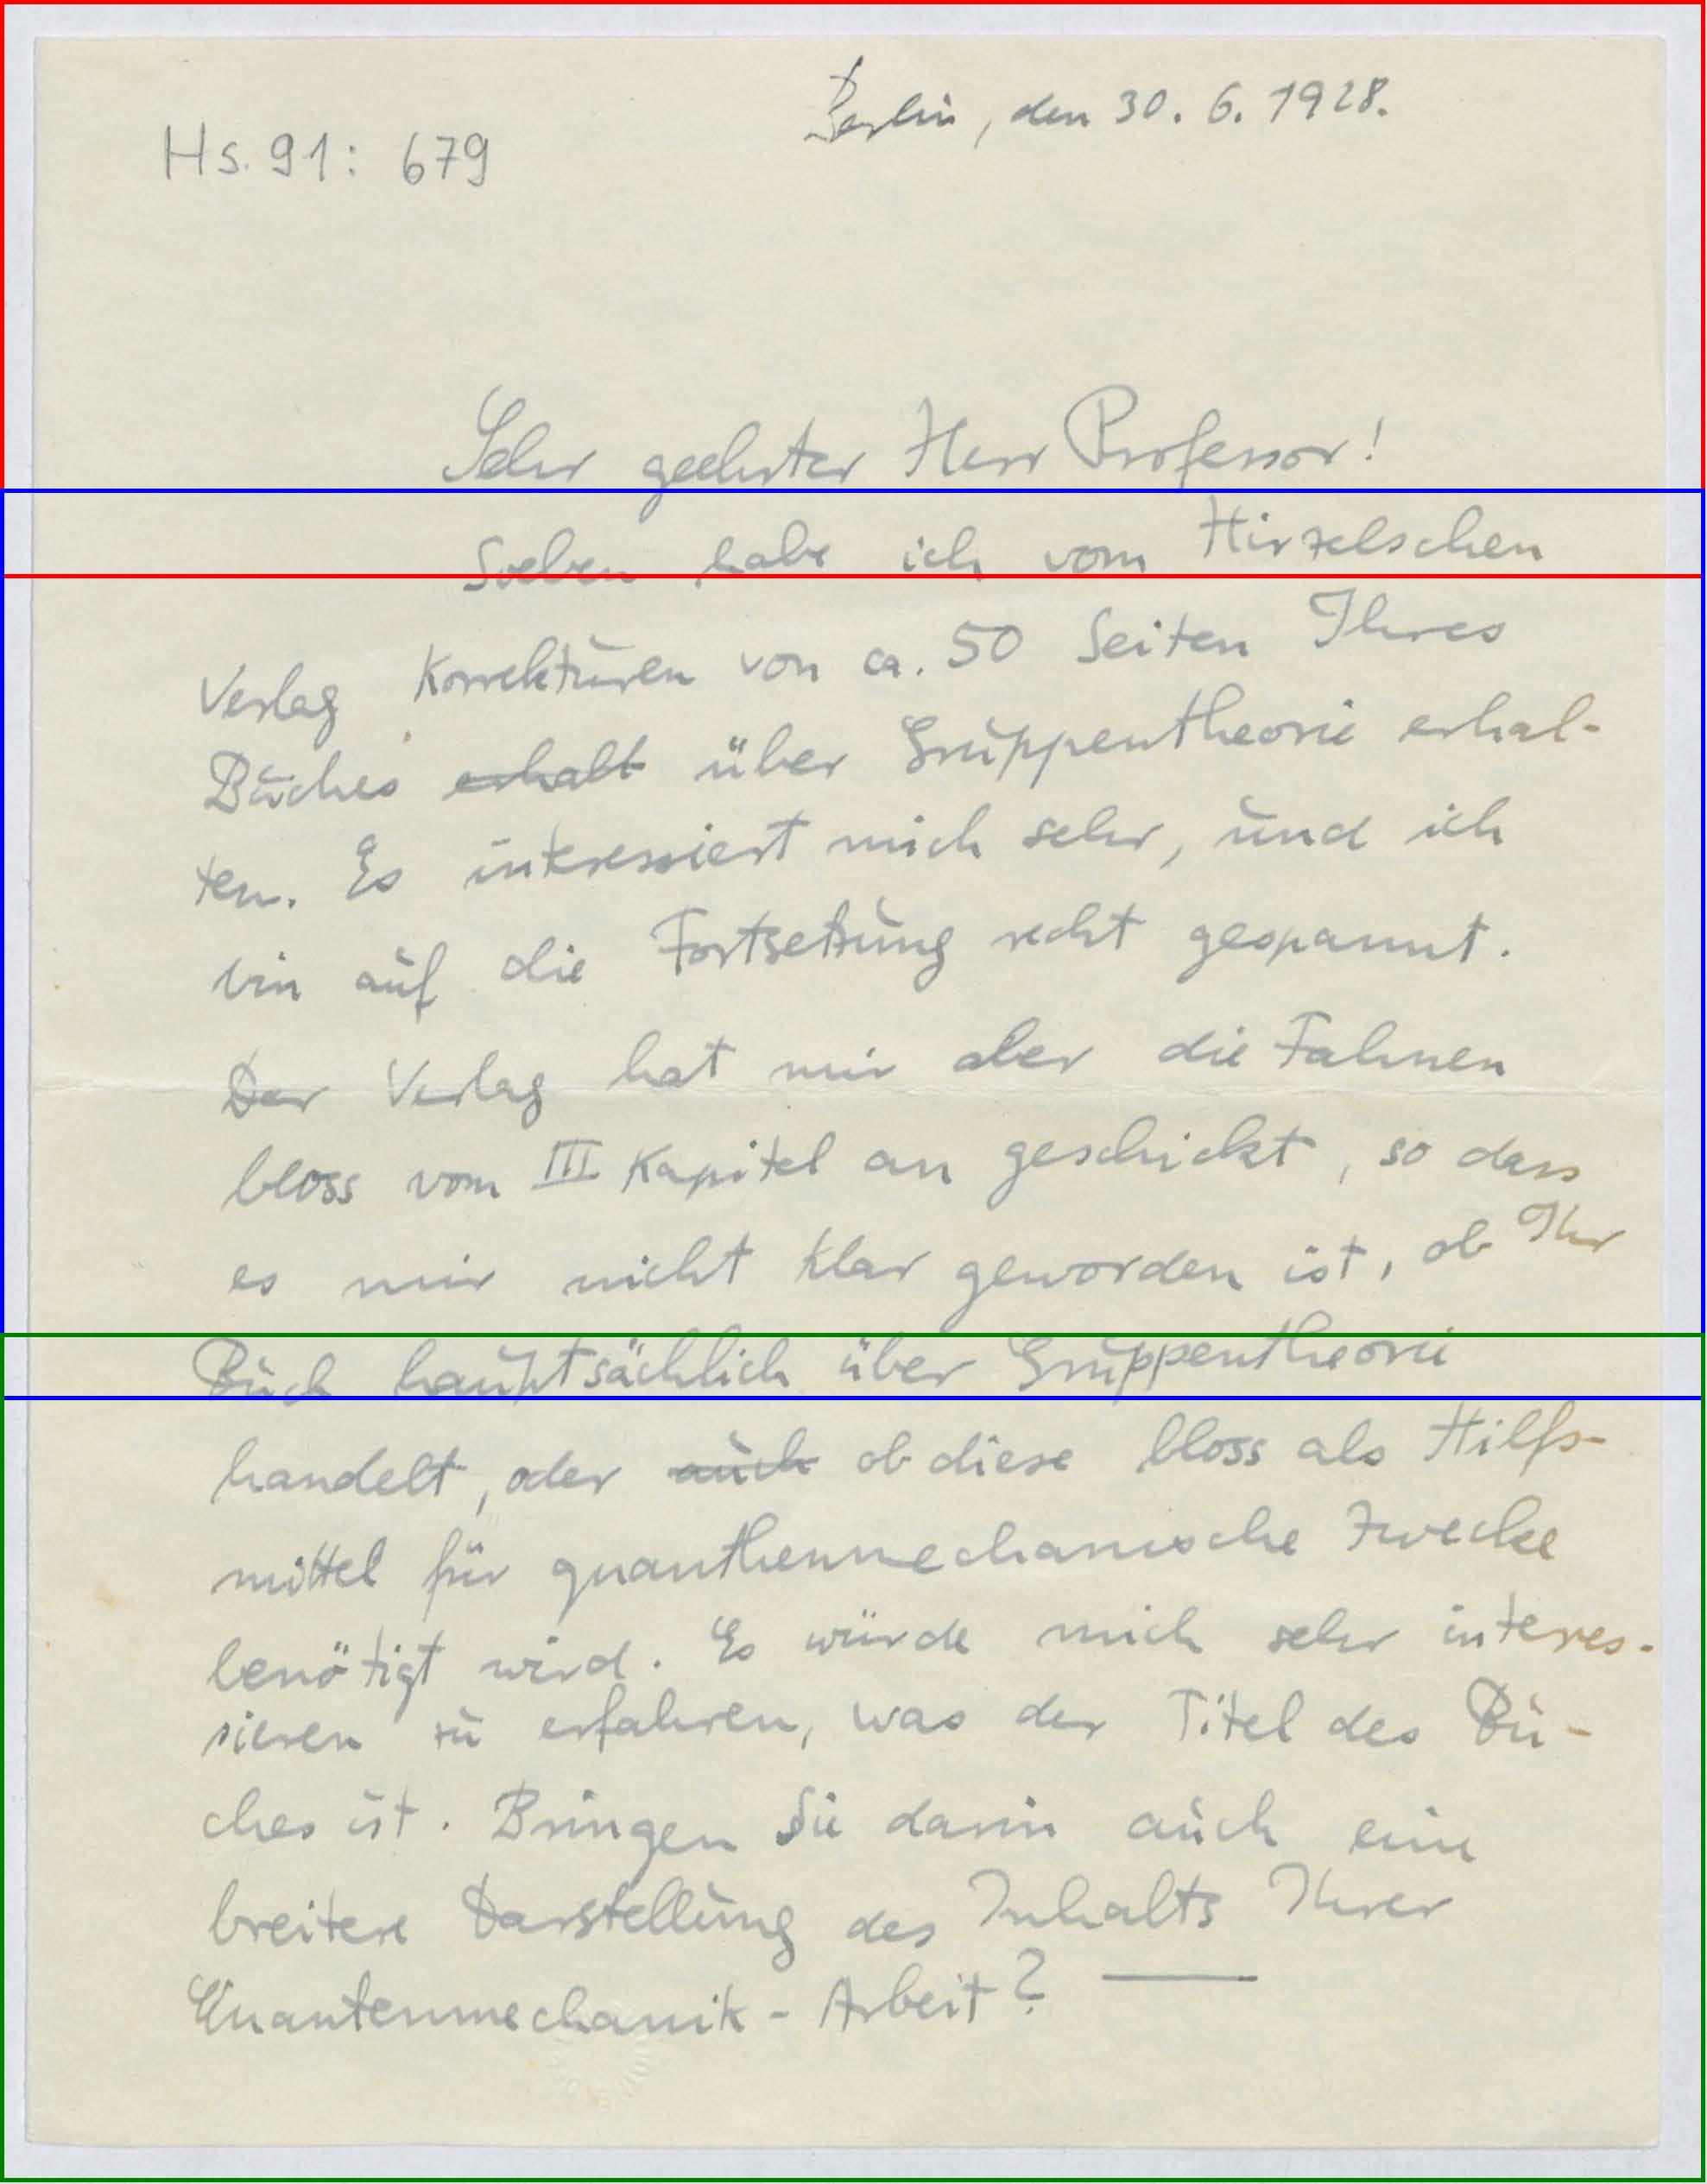 Berlin, den 30. 6. 1928.
Hs. 91: 679
Sehr geehrter Herr Professor!
Soeben habe ich vom Hirzelschen
Verlag Korrekturen von ca. 50 Seiten Ihres
Buches erhalt über Gruppentheorie erhal-
ten. Es interessiert mich sehr, und ich
bin auf die Fortsetzung recht gespannt.
Der Verlag hat mir aber die Fahnen
bloss vom III Kapitel an geschickt, so dass
es mir nicht klar geworden ist, ob Ihr
Buch hauptsächlich über Gruppentheorie
handelt, oder auch ob diese bloss als Hilfs-
mittel für quanthenmechanische Zwecke
benötigt wird. Es würde mich sehr interes-
sieren zu erfahren, was der Titel des Bu-
ches ist. Bringen Sie darin auch eine
breitere Darstellung des Inhalts Ihrer
Quantenmechanik - Arbeit? —